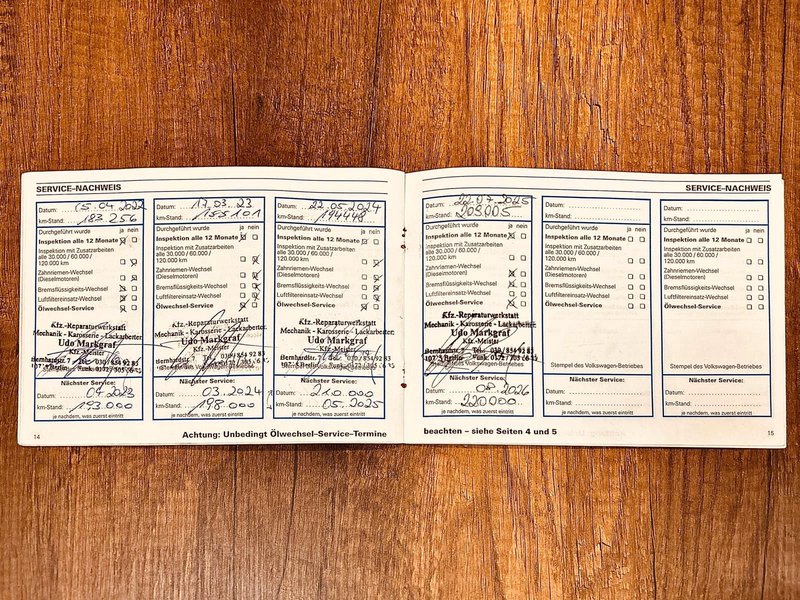 SERVICE–NACHWEIS
Datum: 15.04.2022
km-Stand: 183.256
Durchgeführt wurde ja nein
Inspektion alle 12 Monate
Inspektion mit Zusatzarbeiten
alle 30.000 / 60.000 /
120.000 km
Zahnriemen-Wechsel
(Dieselmotoren)
Bremsflüssigkeits-Wechsel
Luftfiltereinsatz-Wechsel
Ölwechsel-Service
Kfz.-Reparaturwerkstatt
Mechanik - Karosserie - Lackarbeiten
Udo Markgraf
Kfz.-Meister
Nächster Service:
Datum: 04.2023
km-Stand: 193.000
je nachdem, was zuerst eintritt
Datum: 17.03.23
km-Stand: 155101
Durchgeführt wurde ja nein
Inspektion alle 12 Monate
Inspektion mit Zusatzarbeiten
alle 30.000 / 60.000 /
120.000 km
Zahnriemen-Wechsel
(Dieselmotoren)
Bremsflüssigkeits-Wechsel
Luftfiltereinsatz-Wechsel
Ölwechsel-Service
Kfz.-Reparaturwerkstatt
Mechanik - Karosserie - Lackarbeiten
Udo Markgraf
Kfz.-Meister
Nächster Service:
Datum: 03.2024
km-Stand: 198.000
je nachdem, was zuerst eintritt
Datum: 22.05.2024
km-Stand: 194448
Durchgeführt wurde ja nein
Inspektion alle 12 Monate
Inspektion mit Zusatzarbeiten
alle 30.000 / 60.000 /
120.000 km
Zahnriemen-Wechsel
(Dieselmotoren)
Bremsflüssigkeits-Wechsel
Luftfiltereinsatz-Wechsel
Ölwechsel-Service
Kfz.-Reparaturwerkstatt
Mechanik - Karosserie - Lackarbeiten
Udo Markgraf
Kfz.-Meister
Nächster Service:
Datum: 210.000
km-Stand: 05.2025
je nachdem, was zuerst eintritt
14
Achtung: Unbedingt Ölwechsel–Service–Termine
SERVICE–NACHWEIS
Datum: 22.07.2025
km-Stand: 209.005
Durchgeführt wurde ja nein
Inspektion alle 12 Monate
Inspektion mit Zusatzarbeiten
alle 30.000 / 60.000 /
120.000 km
Zahnriemen-Wechsel
(Dieselmotoren)
Bremsflüssigkeits-Wechsel
Luftfiltereinsatz-Wechsel
Ölwechsel-Service
Kfz.-Reparaturwerkstatt
Mechanik - Karosserie - Lackarbeiten
Udo Markgraf
Kfz.-Meister
Nächster Service:
Datum: 08.2026
km-Stand: 220000
je nachdem, was zuerst eintritt
SERVICE–NACHWEIS
Datum:
km-Stand:
Durchgeführt wurde ja nein
Inspektion alle 12 Monate
Inspektion mit Zusatzarbeiten
alle 30.000 / 60.000 /
120.000 km
Zahnriemen-Wechsel
(Dieselmotoren)
Bremsflüssigkeits-Wechsel
Luftfiltereinsatz-Wechsel
Ölwechsel-Service
Stempel des Volkswagen-Betriebes
Nächster Service:
Datum:
km-Stand:
je nachdem, was zuerst eintritt
Datum:
km-Stand:
Durchgeführt wurde ja nein
Inspektion alle 12 Monate
Inspektion mit Zusatzarbeiten
alle 30.000 / 60.000 /
120.000 km
Zahnriemen-Wechsel
(Dieselmotoren)
Bremsflüssigkeits-Wechsel
Luftfiltereinsatz-Wechsel
Ölwechsel-Service
Stempel des Volkswagen-Betriebes
Nächster Service:
Datum:
km-Stand:
je nachdem, was zuerst eintritt
beachten – siehe Seiten 4 und 5
15